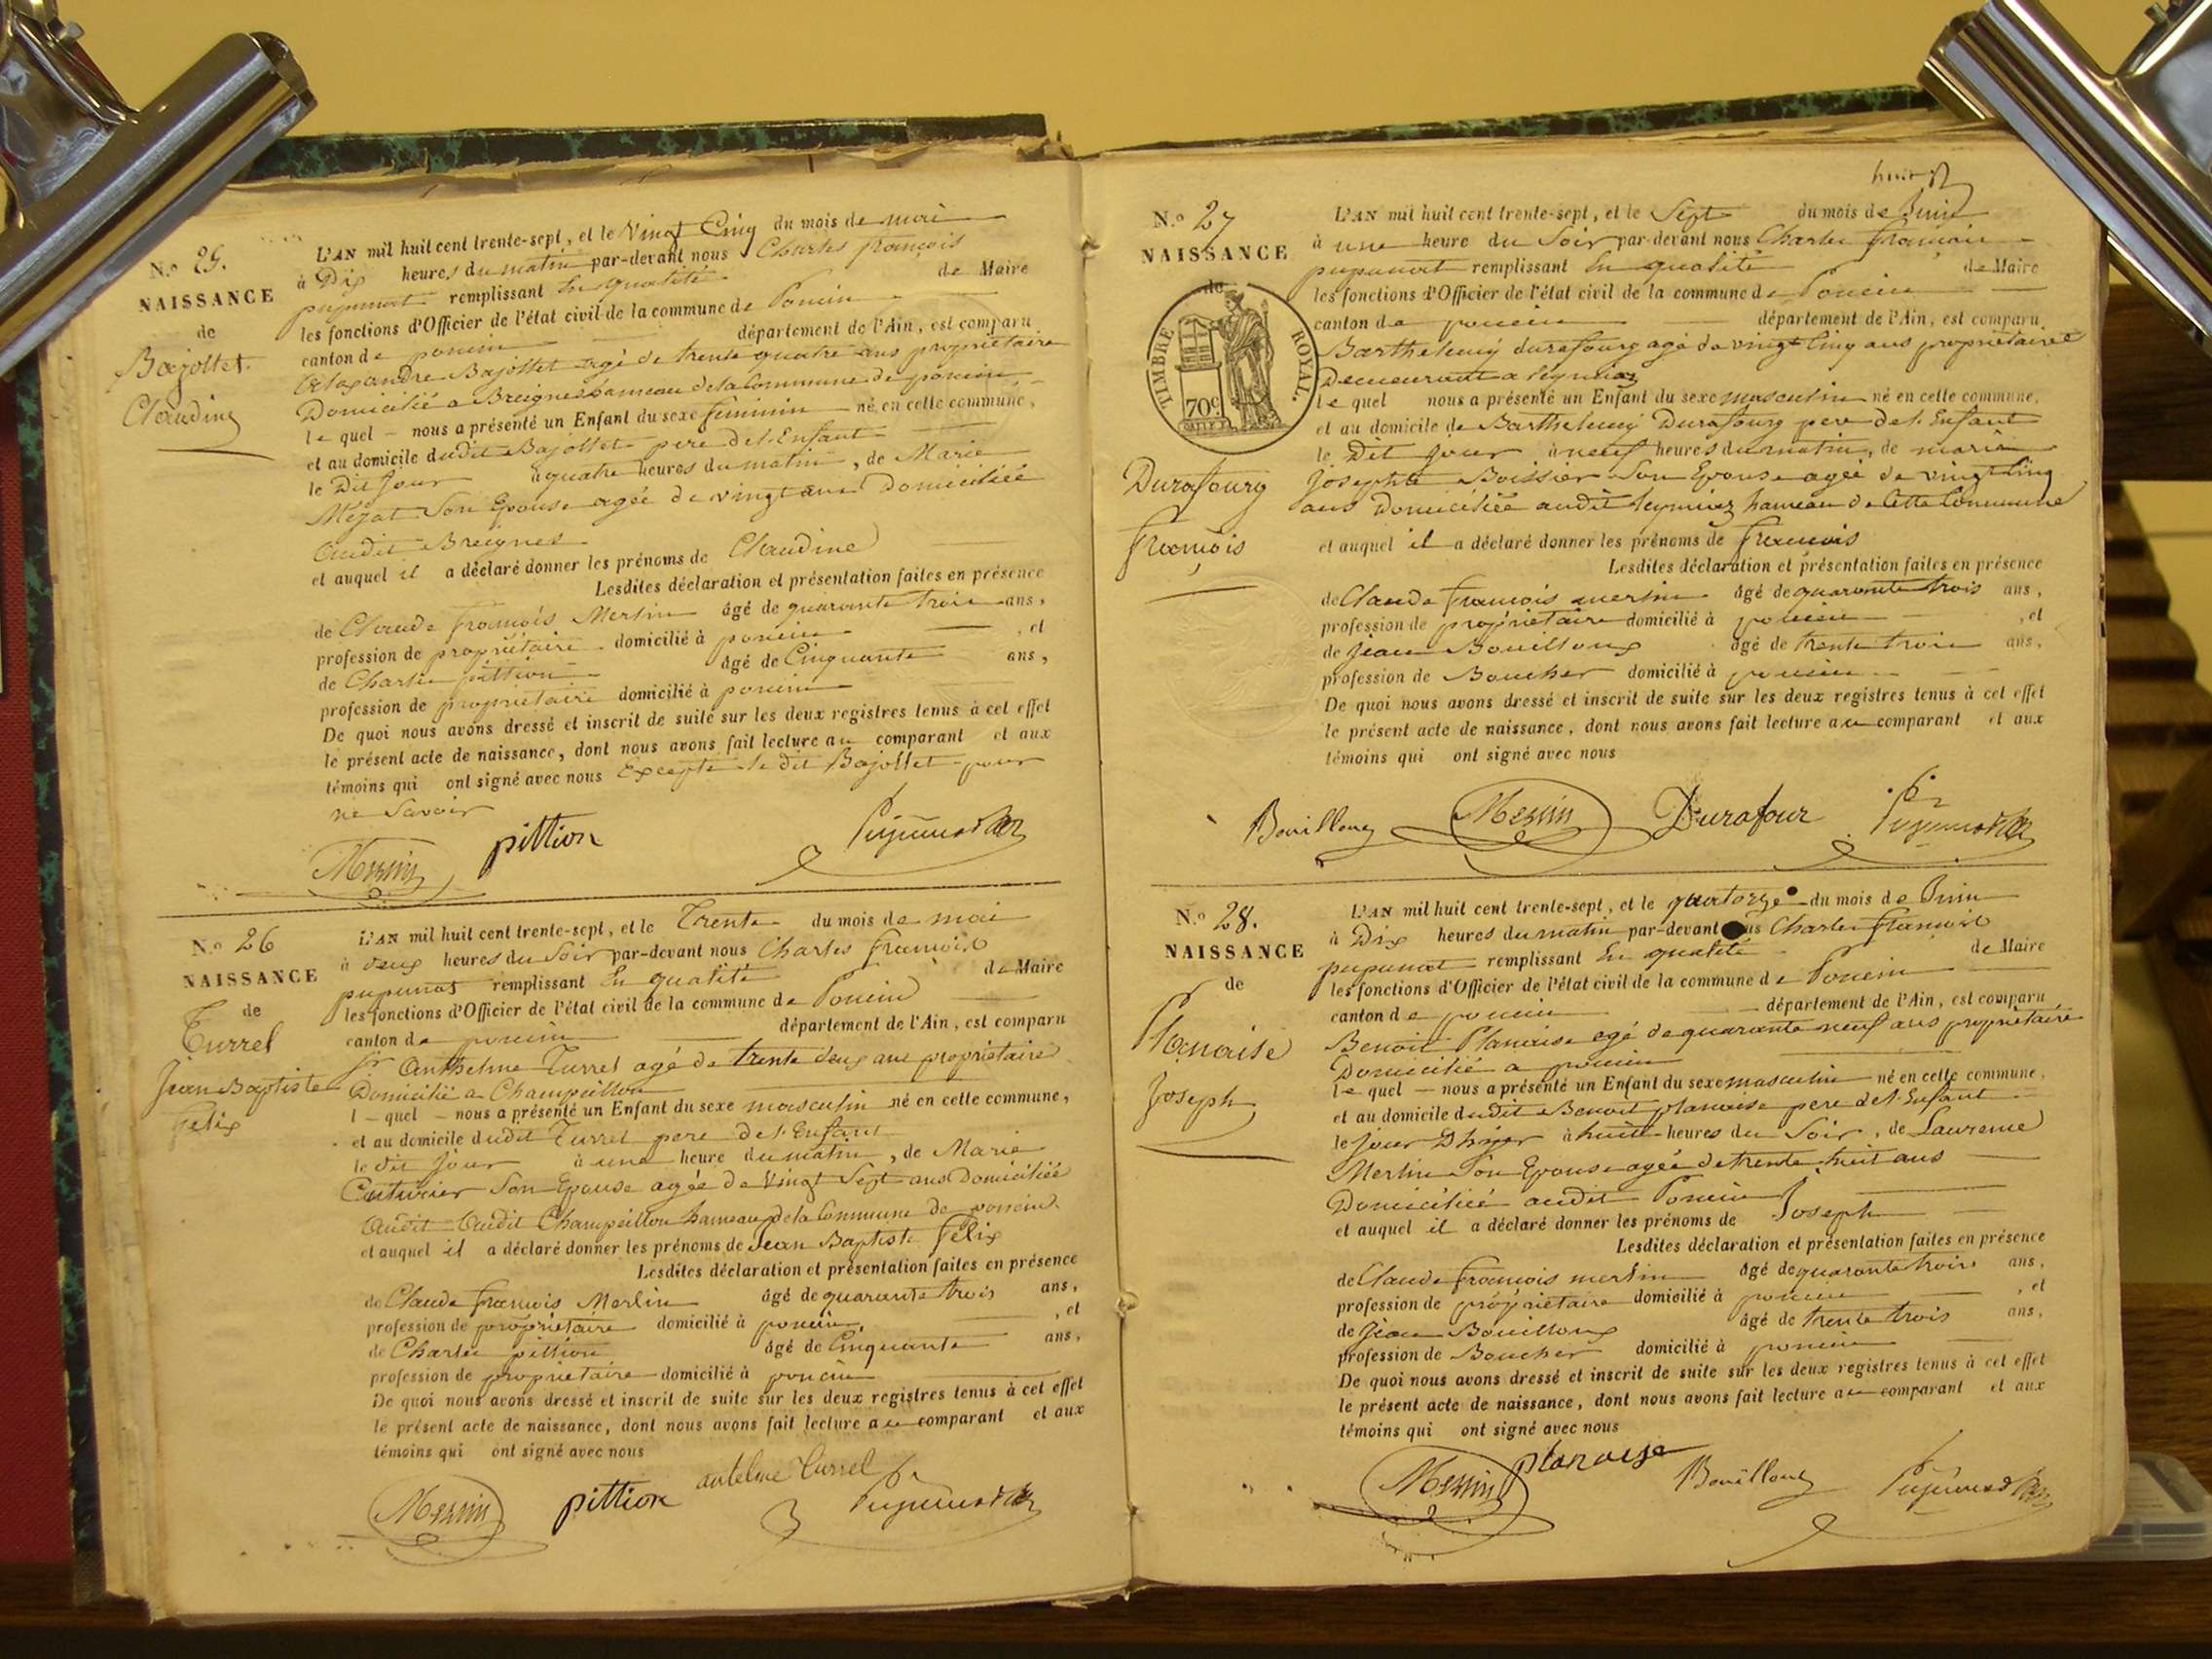 N.o 25.
NAISSANCE
de
Bajollet
Claudine
L'AN mil huit cent trente-sept, et le Vingt Cinq du mois de mai
à Dix heures du matin par-devant nous Charles françois
pupunat remplissant En qualité de Maire
les fonctions d'Officier de l'état civil de la commune de Poncin
canton de poncin département de l'Ain, est comparu
Alexandre Bajollet agé de trente quatre ans propriétaire
Domicilié a Breignes hameau de la Commune de poncin
le quel nous a présenté un Enfant du sexe feminin né en cette commune,
et au domicile dudit Bajollet pere de l'Enfant
le Dit Jour à quatre heures du matin, de Marie
Mégat Son Epouse agée de vingt ans Domiciliée
audit Breignes
et auquel il a déclaré donner les prénoms de Claudine
Lesdites déclaration et présentation faites en présence
de Claude françois Merlin âgé de quarante trois ans,
profession de propriétaire domicilié à poncin, et
de Charles pittion âgé de Cinquante ans,
profession de propriétaire domicilié à poncin
De quoi nous avons dressé et inscrit de suite sur les deux registres tenus à cet effet
le présent acte de naissance, dont nous avons fait lecture au comparant et aux
témoins qui ont signé avec nous Excepté le dit Bajollet pour
ne Savoir
Merlin pittion Pupunat
N.o 26
NAISSANCE
de
Turrel
Jean Baptiste
felix
L'AN mil huit cent trente-sept, et le Trente du mois de mai
à deux heures du Soir par-devant nous Charles françois
pupunat remplissant En qualité de Maire
les fonctions d'Officier de l'état civil de la commune de Poncin
canton de poncin département de l'Ain, est comparu
Sr Anthelme Turrel agé de trente deux ans propriétaire
Domicilié a Champeillon
l quel nous a présenté un Enfant du sexe masculin né en cette commune,
et au domicile dudit Turrel pere de l'Enfant
le dit jour à une heure du matin, de Marie
Couturier Son Epouse agée de Vingt Sept ans Domiciliée
Audit Audit Champeillon hameau de la Commune de poncin
et auquel il a déclaré donner les prénoms de Jean Baptiste félix
Lesdites déclaration et présentation faites en présence
de Claude françois Merlin âgé de quarante trois ans,
profession de propriétaire domicilié à poncin, et
de Charles pittion âgé de Cinquante ans,
profession de propriétaire domicilié à poncin
De quoi nous avons dressé et inscrit de suite sur les deux registres tenus à cet effet
le présent acte de naissance, dont nous avons fait lecture au comparant et aux
témoins qui ont signé avec nous
Merlin pittion antelme turrel Pupunat
huit
N.o 27
NAISSANCE
de
TIMBRE ROYAL.
70c
Durafourg
françois
L'AN mil huit cent trente-sept, et le Sept du mois de Juin
à une heure du Soir par-devant nous Charles françois
pupunat remplissant En qualité de Maire
les fonctions d'Officier de l'état civil de la commune de Poncin
canton de poncin département de l'Ain, est comparu
Barthelemy durafourg agé de vingt Cinq ans propriétaire
Demeurant a leymiaz
le quel nous a présenté un Enfant du sexe masculin né en cette commune,
et au domicile de Barthelemy Durafourg pere de l'Enfant
le Dit jour à neuf heures du matin, de marie
Josephte Boissier Son Epouse agée de vingt Cinq
ans Domiciliée audit leymiaz hameau de Cette Commune
et auquel il a déclaré donner les prénoms de francois
Lesdites déclaration et présentation faites en présence
de Claude francois merlin âgé de quarante trois ans,
profession de propriétaire domicilié à poncin, et
de Jean Bouilloux âgé de trente trois ans,
profession de Boucher domicilié à poncin
De quoi nous avons dressé et inscrit de suite sur les deux registres tenus à cet effet
le présent acte de naissance, dont nous avons fait lecture au comparant et aux
témoins qui ont signé avec nous
Bouilloux Merlin Durafour Pupunat
N.o 28.
NAISSANCE
de
Planaise
Joseph
L'AN mil huit cent trente-sept, et le quatorze du mois de Juin
à Dix heures du matin par-devant us Charles françois
pupunat remplissant En qualité de Maire
les fonctions d'Officier de l'état civil de la commune de Poncin
canton de poncin département de l'Ain, est comparu
Benoit Planaise agé de quarante neuf ans propriétaire
Domicilié a poncin
le quel nous a présenté un Enfant du sexe masculin né en cette commune,
et au domicile dudit Benoit planaise pere de l'Enfant
le Jour D'hyer à huit heures du Soir, de Laurence
Merlin Son Epouse agée de trente huit ans
Domiciliée audit Poncin
et auquel il a déclaré donner les prénoms de Joseph
Lesdites déclaration et présentation faites en présence
de Claude francois merlin âgé de quarante trois ans,
profession de propriétaire domicilié à poncin, et
de Jean Bouilloux âgé de trente trois ans,
profession de Boucher domicilié à poncin
De quoi nous avons dressé et inscrit de suite sur les deux registres tenus à cet effet
le présent acte de naissance, dont nous avons fait lecture au comparant et aux
témoins qui ont signé avec nous
Merlin planaise Bouilloux Pupunat